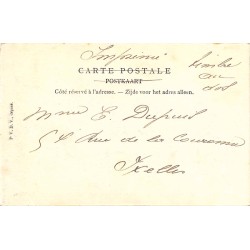 Imprimé
timbre
au
dos
CARTE POSTALE
POSTKAART
Côté réservé à l'adresse. — Zijde voor het adres alleen.
Mme E. Dupuis
54 Rue de la Couronne
Ixelles